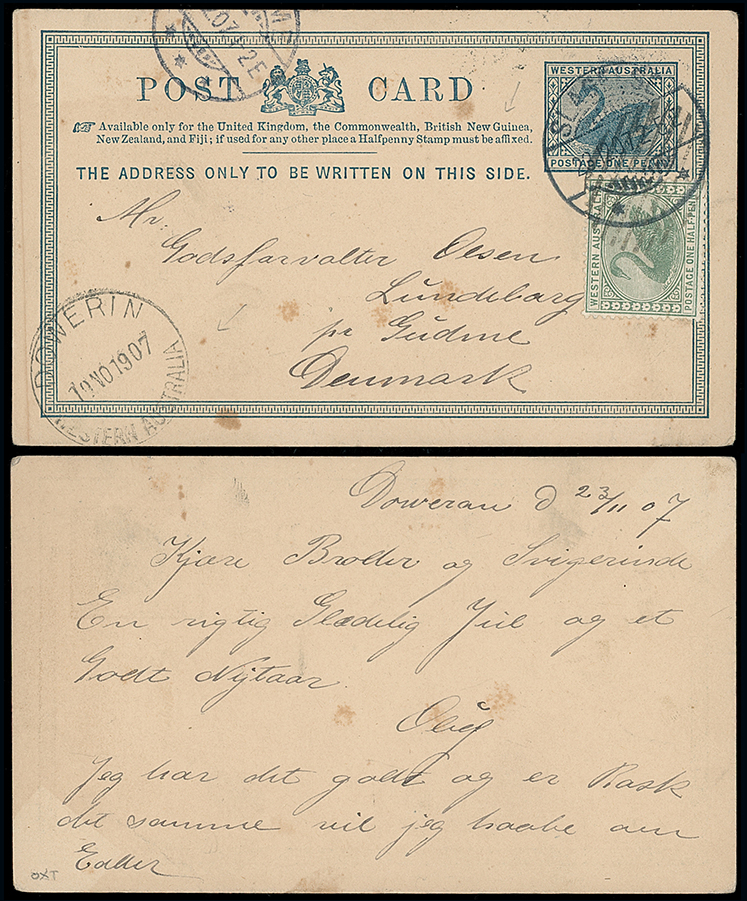 POST CARD
Available only for the United Kingdom, the Commonwealth, British New Guinea,
New Zealand, and Fiji; if used for any other place a Halfpenny Stamp must be affixed.
THE ADDRESS ONLY TO BE WRITTEN ON THIS SIDE.
WESTERN AUSTRALIA
POSTAGE ONE PENNY
WESTERN AUSTRALIA
POSTAGE ONE HALF-PENNY
Mr.
Godsforvalter Olsen
Lundeborg
pr Gudme
Denmark
DOWERIN
19 NO 1907
WESTERN AUSTRALIA
Doweran d 23/11 07
Kjære Broder og Svigerinde
En rigtig Glædelig Jul og et
Godt Nytaar
Jeg har det godt og er Rask
det samme vil jeg haabe om
Eder
OXT